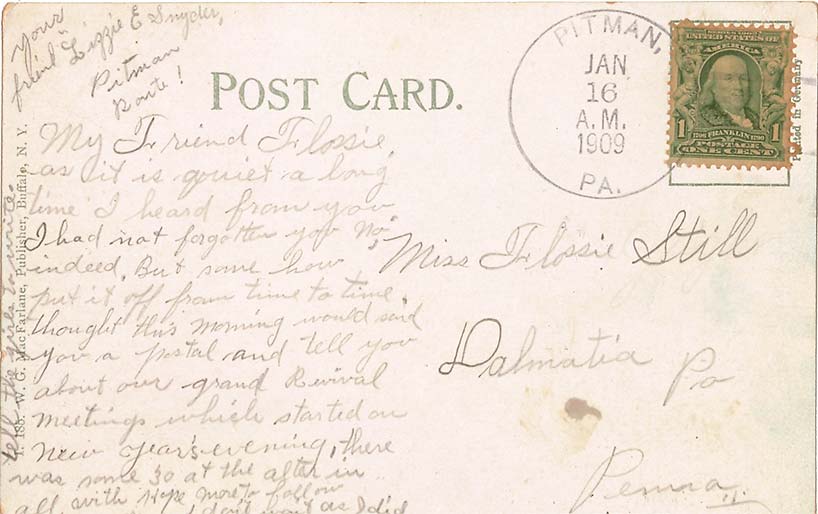 your
friend Lizzie E Snyder,
Pitman
Route!
POST CARD.
PITMAN,
JAN
16
A.M.
1909
PA.
SERIES 1902
UNITED STATES OF
AMERICA
1706 FRANKLIN 1790
1 1
POSTAGE
ONE CENT
Printed in Germany
My Friend Flossie,
as it is qouiet a long
time I heard from you
I had not forgotten you No,
indeed, But some how
put it off from time to time,
thought this morning would said
you a postal and tell you
about our grand Revival
meetings which started on
New Year's evening, there
was some 30 at the alter in
all, with Hope more to follow
don't wait as I did
tell the girls to write.
W. G. MacFarlane, Publisher, Buffalo, N. Y.
Miss Flossie Still
Dalmatia
Po
Penna